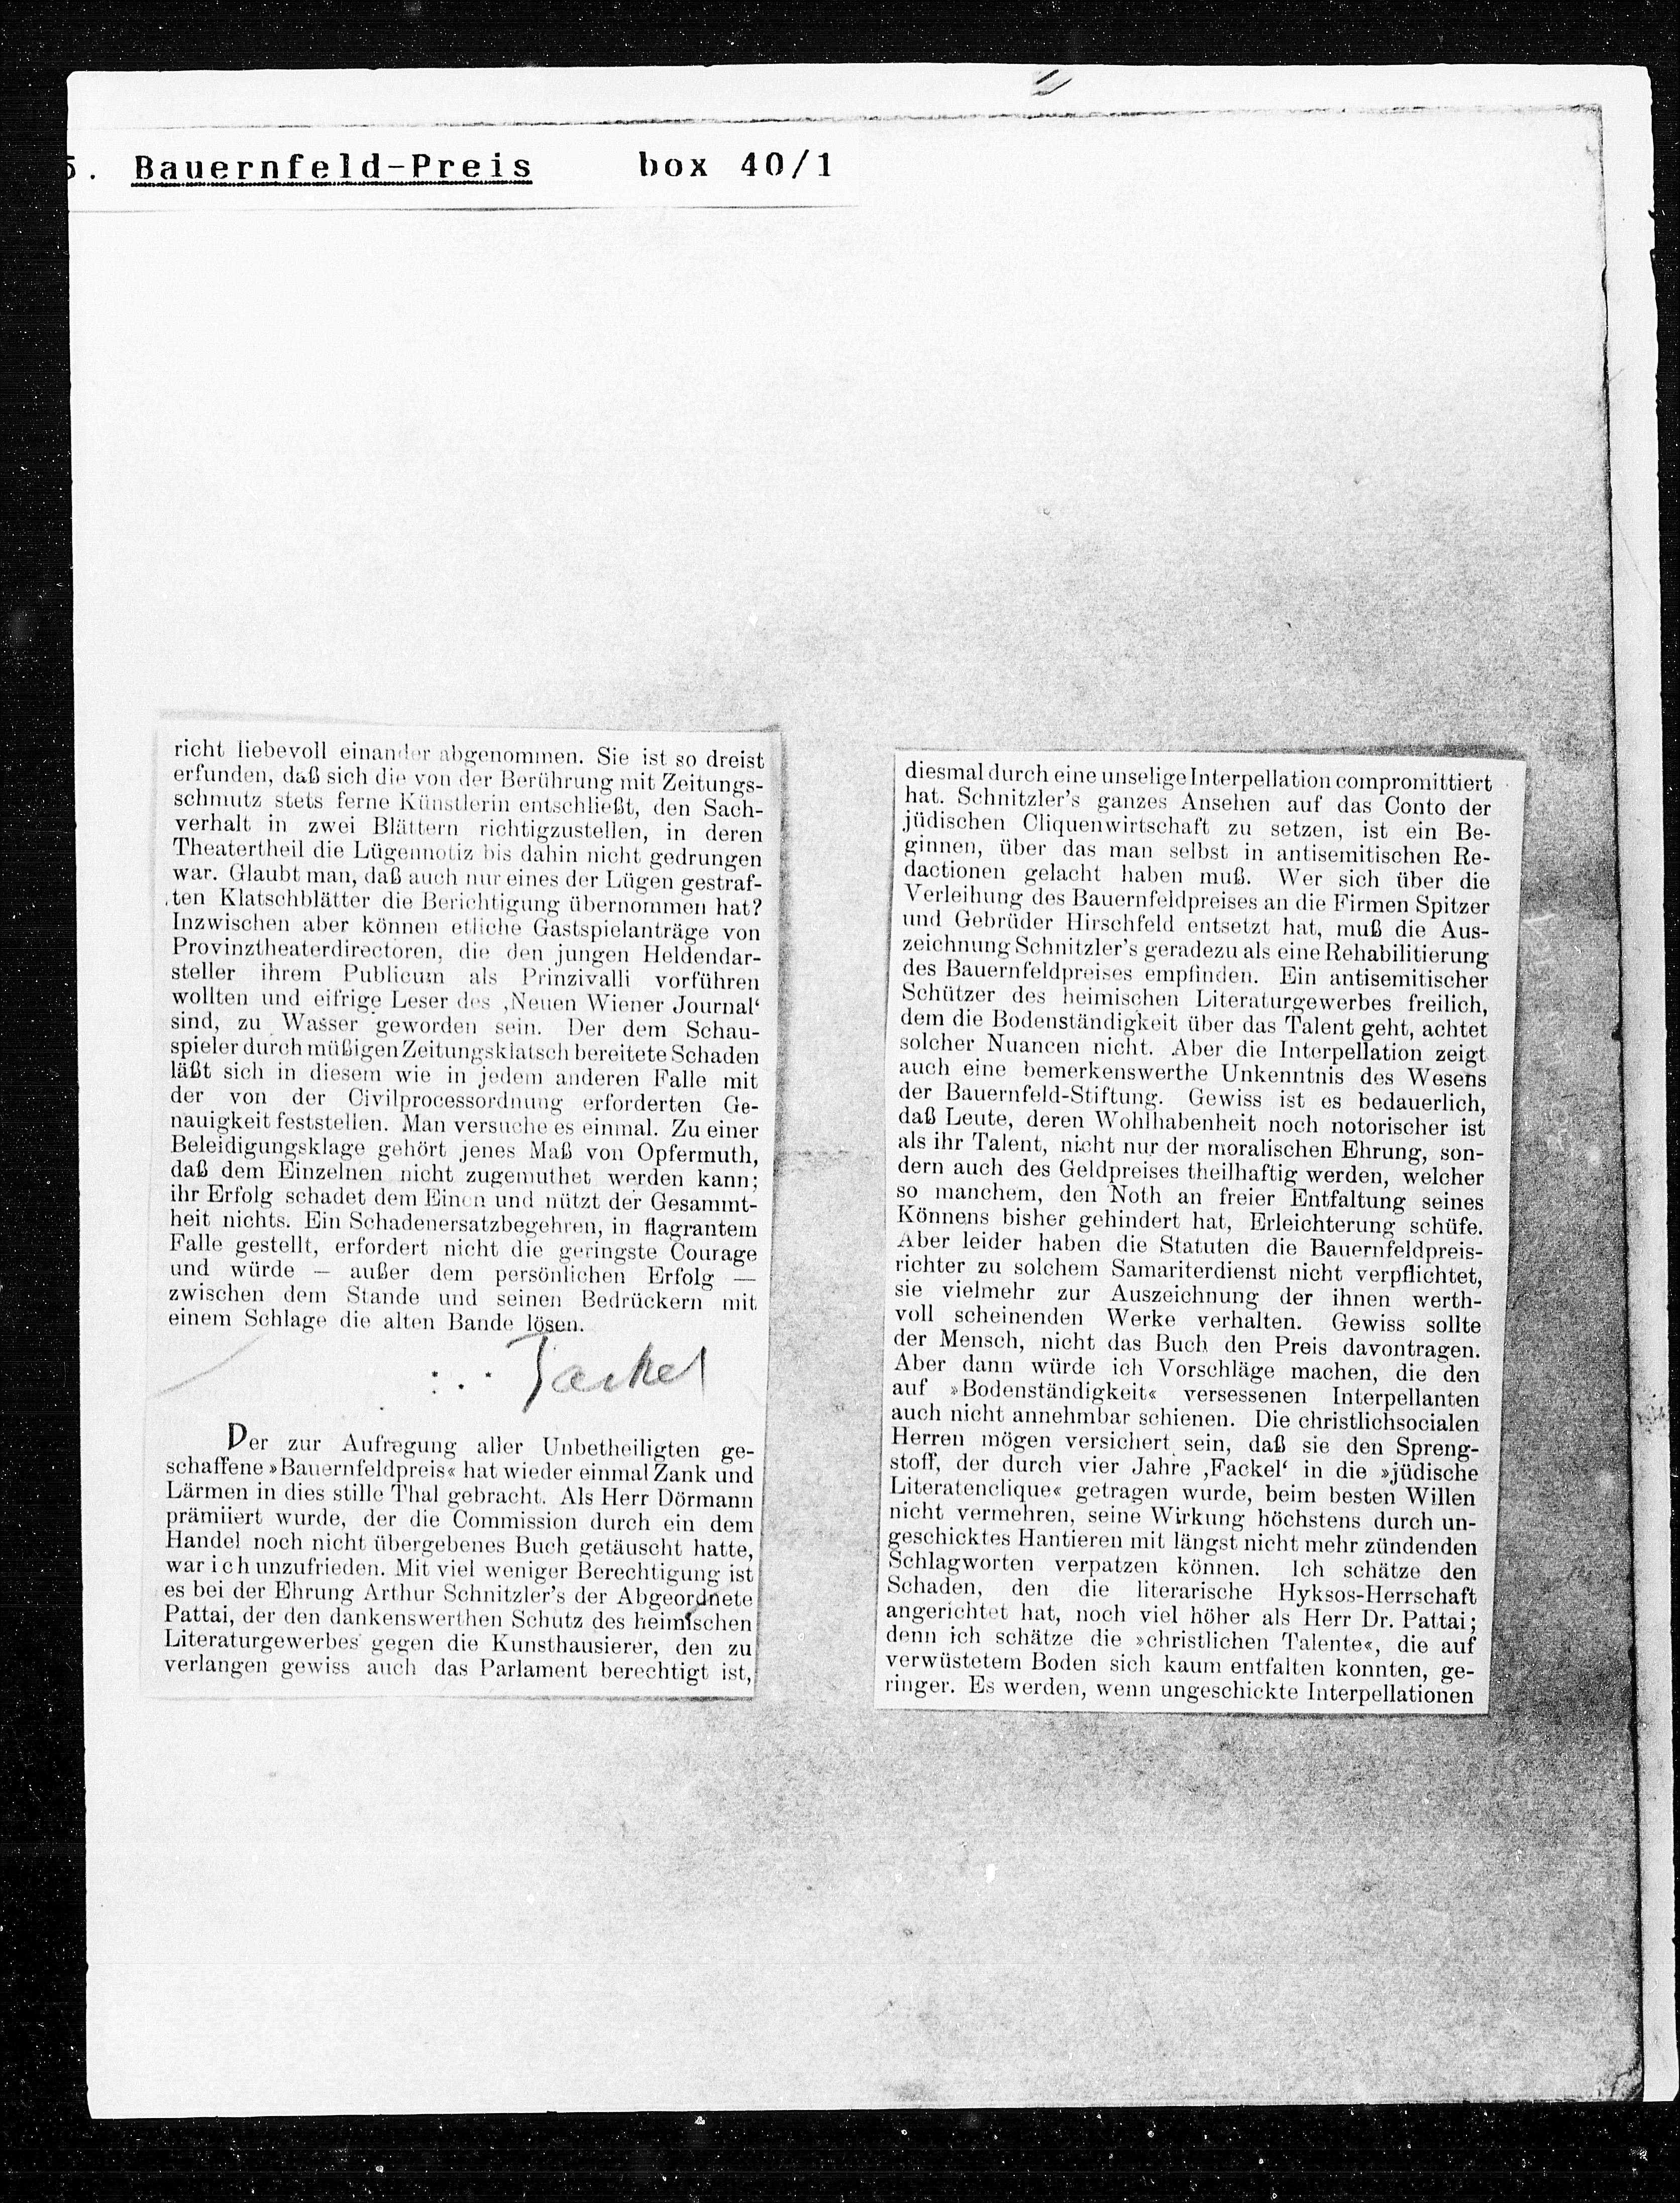 5. Bauernfeld-Preis box 40/1
richt liebevoll einander abgenommen. Sie ist so dreist
erfunden, daß sich die von der Berührung mit Zeitungs-
schmutz stets ferne Künstlerin entschließt, den Sach-
verhalt in zwei Blättern richtigzustellen, in deren
Theatertheil die Lügennotiz bis dahin nicht gedrungen
war. Glaubt man, daß auch nur eines der Lügen gestraf-
ten Klatschblätter die Berichtigung übernommen hat?
Inzwischen aber können etliche Gastspielanträge von
Provinztheaterdirectoren, die den jungen Heldendar-
steller ihrem Publicum als Prinzivalli vorführen
wollten und eifrige Leser des ‚Neuen Wiener Journal‘
sind, zu Wasser geworden sein. Der dem Schau-
spieler durch müßigen Zeitungsklatsch bereitete Schaden
läßt sich in diesem wie in jedem anderen Falle mit
der von der Civilprocessordnung erforderten Ge-
nauigkeit feststellen. Man versuche es einmal. Zu einer
Beleidigungsklage gehört jenes Maß von Opfermuth,
daß dem Einzelnen nicht zugemuthet werden kann;
ihr Erfolg schadet dem Einen und nützt der Gesammt-
heit nichts. Ein Schadenersatzbegehren, in flagrantem
Falle gestellt, erfordert nicht die geringste Courage
und würde — außer dem persönlichen Erfolg —
zwischen dem Stande und seinen Bedrückern mit
einem Schlage die alten Bande lösen.
Fackel
Der zur Aufregung aller Unbetheiligten ge-
schaffene »Bauernfeldpreis« hat wieder einmal Zank und
Lärmen in dies stille Thal gebracht. Als Herr Dörmann
prämiiert wurde, der die Commission durch ein dem
Handel noch nicht übergebenes Buch getäuscht hatte,
war ich unzufrieden. Mit viel weniger Berechtigung ist
es bei der Ehrung Arthur Schnitzler's der Abgeordnete
Pattai, der den dankenswerthen Schutz des heimischen
Literaturgewerbes gegen die Kunsthausierer, den zu
verlangen gewiss auch das Parlament berechtigt ist,
diesmal durch eine unselige Interpellation compromittiert
hat. Schnitzler's ganzes Ansehen auf das Conto der
jüdischen Cliquenwirtschaft zu setzen, ist ein Be-
ginnen, über das man selbst in antisemitischen Re-
dactionen gelacht haben muß. Wer sich über die
Verleihung des Bauernfeldpreises an die Firmen Spitzer
und Gebrüder Hirschfeld entsetzt hat, muß die Aus-
zeichnung Schnitzler's geradezu als eine Rehabilitierung
des Bauernfeldpreises empfinden. Ein antisemitischer
Schützer des heimischen Literaturgewerbes freilich,
dem die Bodenständigkeit über das Talent geht, achtet
solcher Nuancen nicht. Aber die Interpellation zeigt
auch eine bemerkenswerthe Unkenntnis des Wesens
der Bauernfeld-Stiftung. Gewiss ist es bedauerlich,
daß Leute, deren Wohlhabenheit noch notorischer ist
als ihr Talent, nicht nur der moralischen Ehrung, son-
dern auch des Geldpreises theilhaftig werden, welcher
so manchem, den Noth an freier Entfaltung seines
Könnens bisher gehindert hat, Erleichterung schüfe.
Aber leider haben die Statuten die Bauernfeldpreis-
richter zu solchem Samariterdienst nicht verpflichtet,
sie vielmehr zur Auszeichnung der ihnen werth-
voll scheinenden Werke verhalten. Gewiss sollte
der Mensch, nicht das Buch den Preis davontragen.
Aber dann würde ich Vorschläge machen, die den
auf »Bodenständigkeit« versessenen Interpellanten
auch nicht annehmbar schienen. Die christlichsocialen
Herren mögen versichert sein, daß sie den Spreng-
stoff, der durch vier Jahre ‚Fackel‘ in die »jüdische
Literatenclique« getragen wurde, beim besten Willen
nicht vermehren, seine Wirkung höchstens durch un-
geschicktes Hantieren mit längst nicht mehr zündenden
Schlagworten verpatzen können. Ich schätze den
Schaden, den die literarische Hyksos-Herrschaft
angerichtet hat, noch viel höher als Herr Dr. Pattai;
denn ich schätze die »christlichen Talente«, die auf
verwüstetem Boden sich kaum entfalten konnten, ge-
ringer. Es werden, wenn ungeschickte Interpellationen